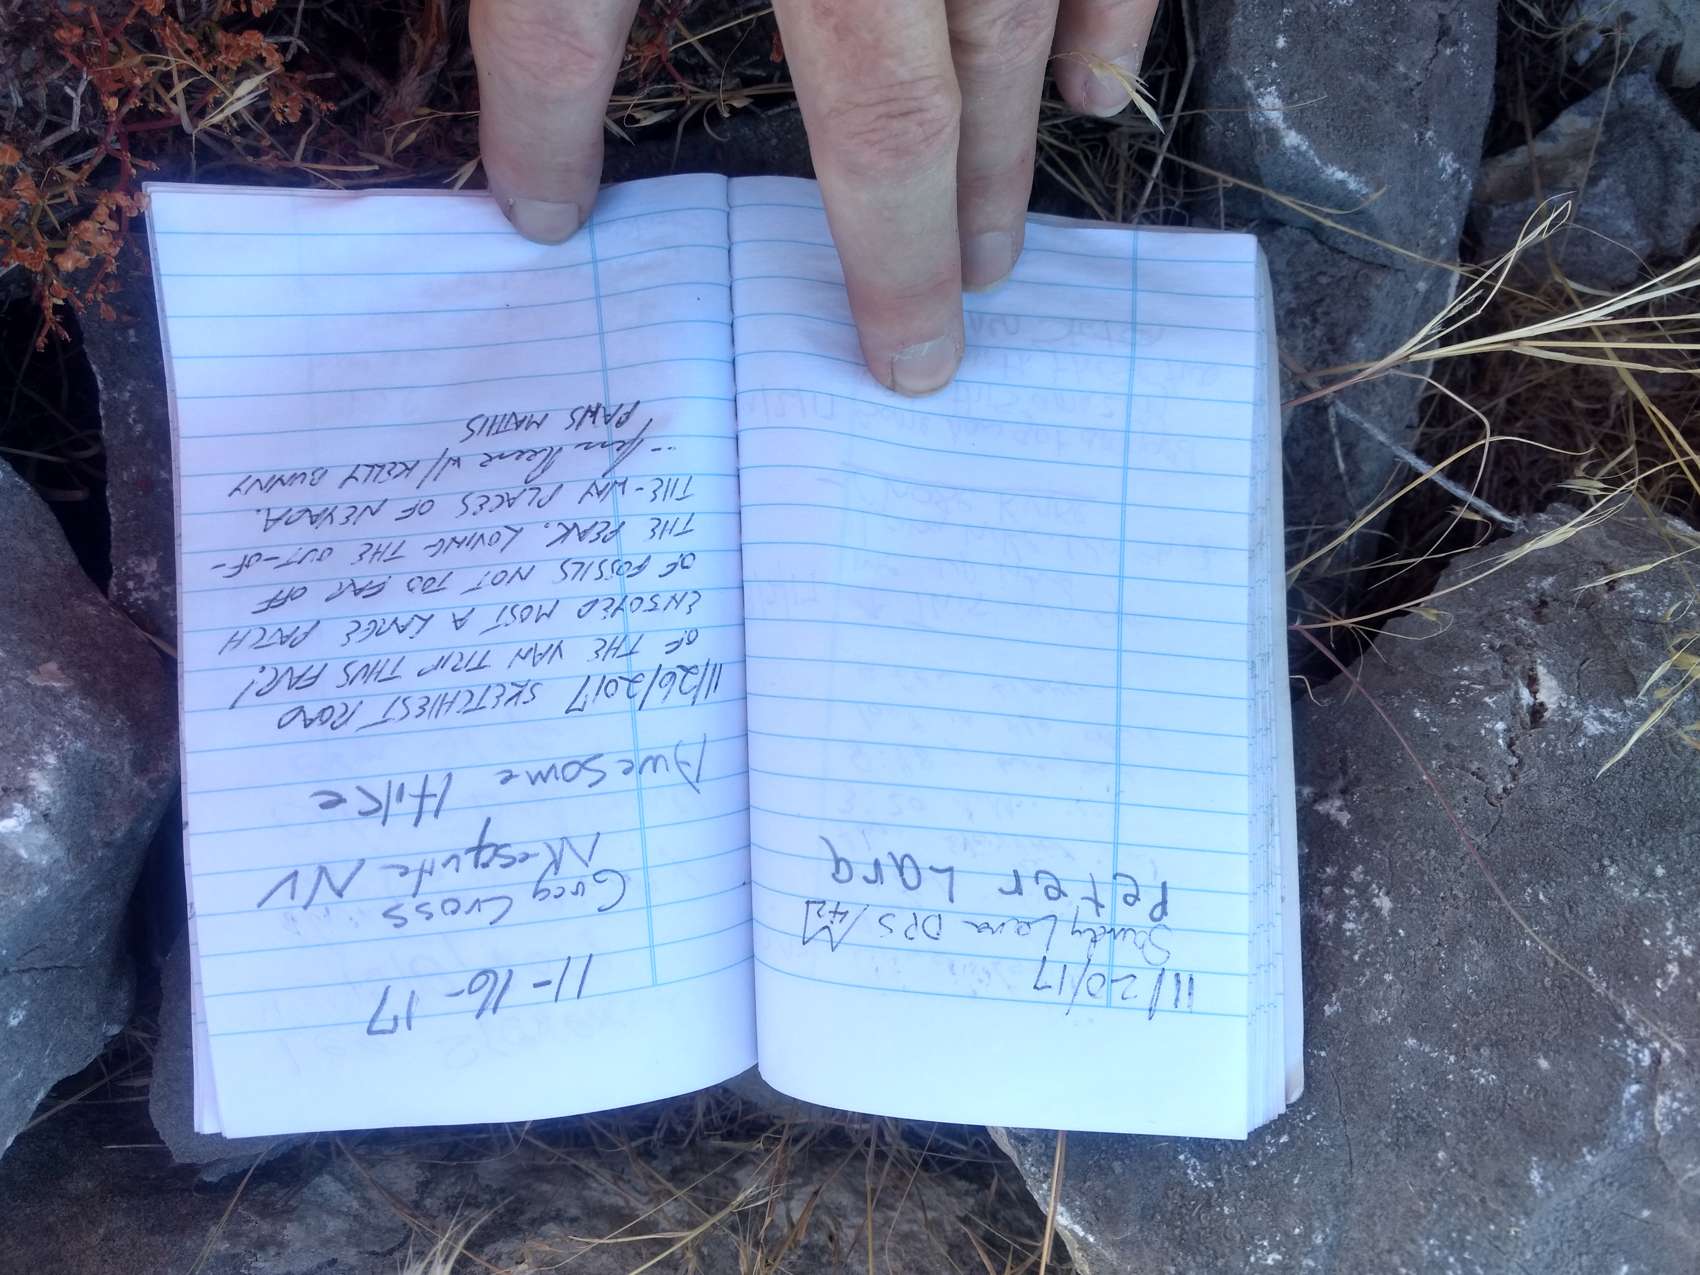 11/20/17
Sandy Lara DPS
Peter Lara
11-16-17
Greg Cross
Mesquite NV
Awesome Hike
11/26/2017 SKETCHIEST ROAD
OF THE VAN TRIP THUS FAR!
ENJOYED MOST A LARGE PATCH
OF FOSSILS NOT TOO FAR OFF
THE PEAK. LOVING THE OUT-OF-
THE-WAY PLACES OF NEVADA.
W/ KELLY BUNNY
PAWS MATHIS